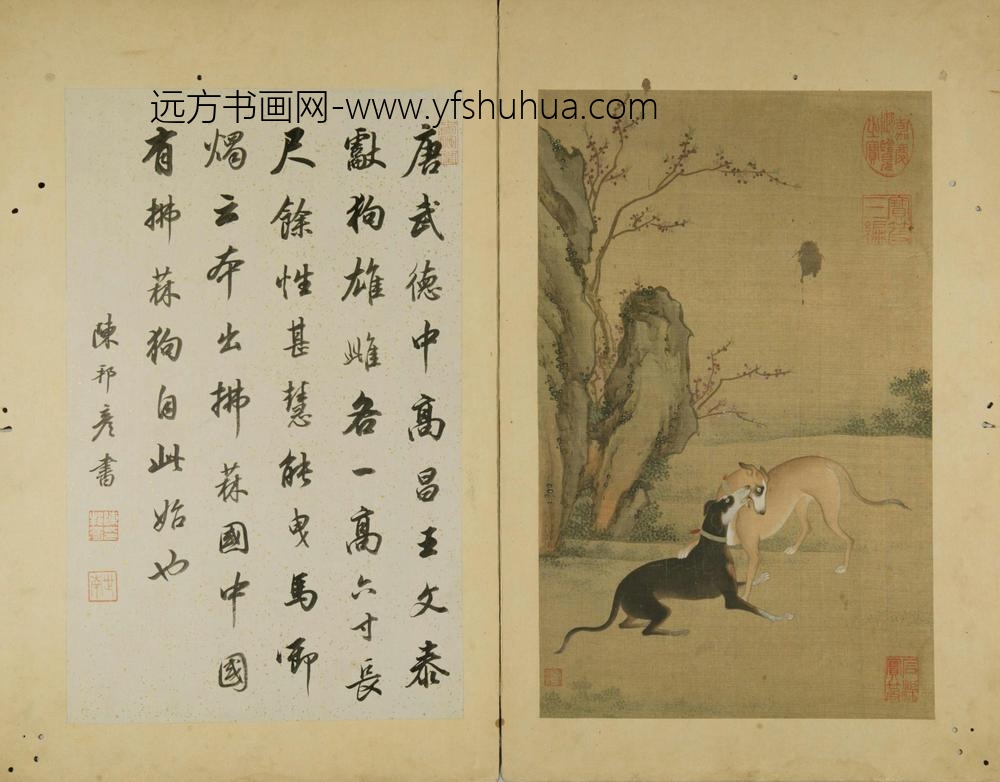 远方书画网-www.yfshuhua.com
唐武德中高昌王文泰
獻狗雄雌各一高六寸長
尺餘性甚慧能曳馬啣
燭云本出拂菻國中國
有拂菻狗自此始也
陳邦彥書
嘉慶御覽之寶
寶笈三編